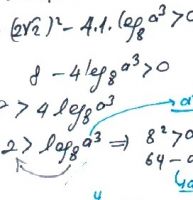 (2√2)² - 4.1. log₈a³ > 0
8 - 4 log₈a³ > 0
> 4 log₈a³
2 > log₈a³ ⇒ 8² > a
64 - a